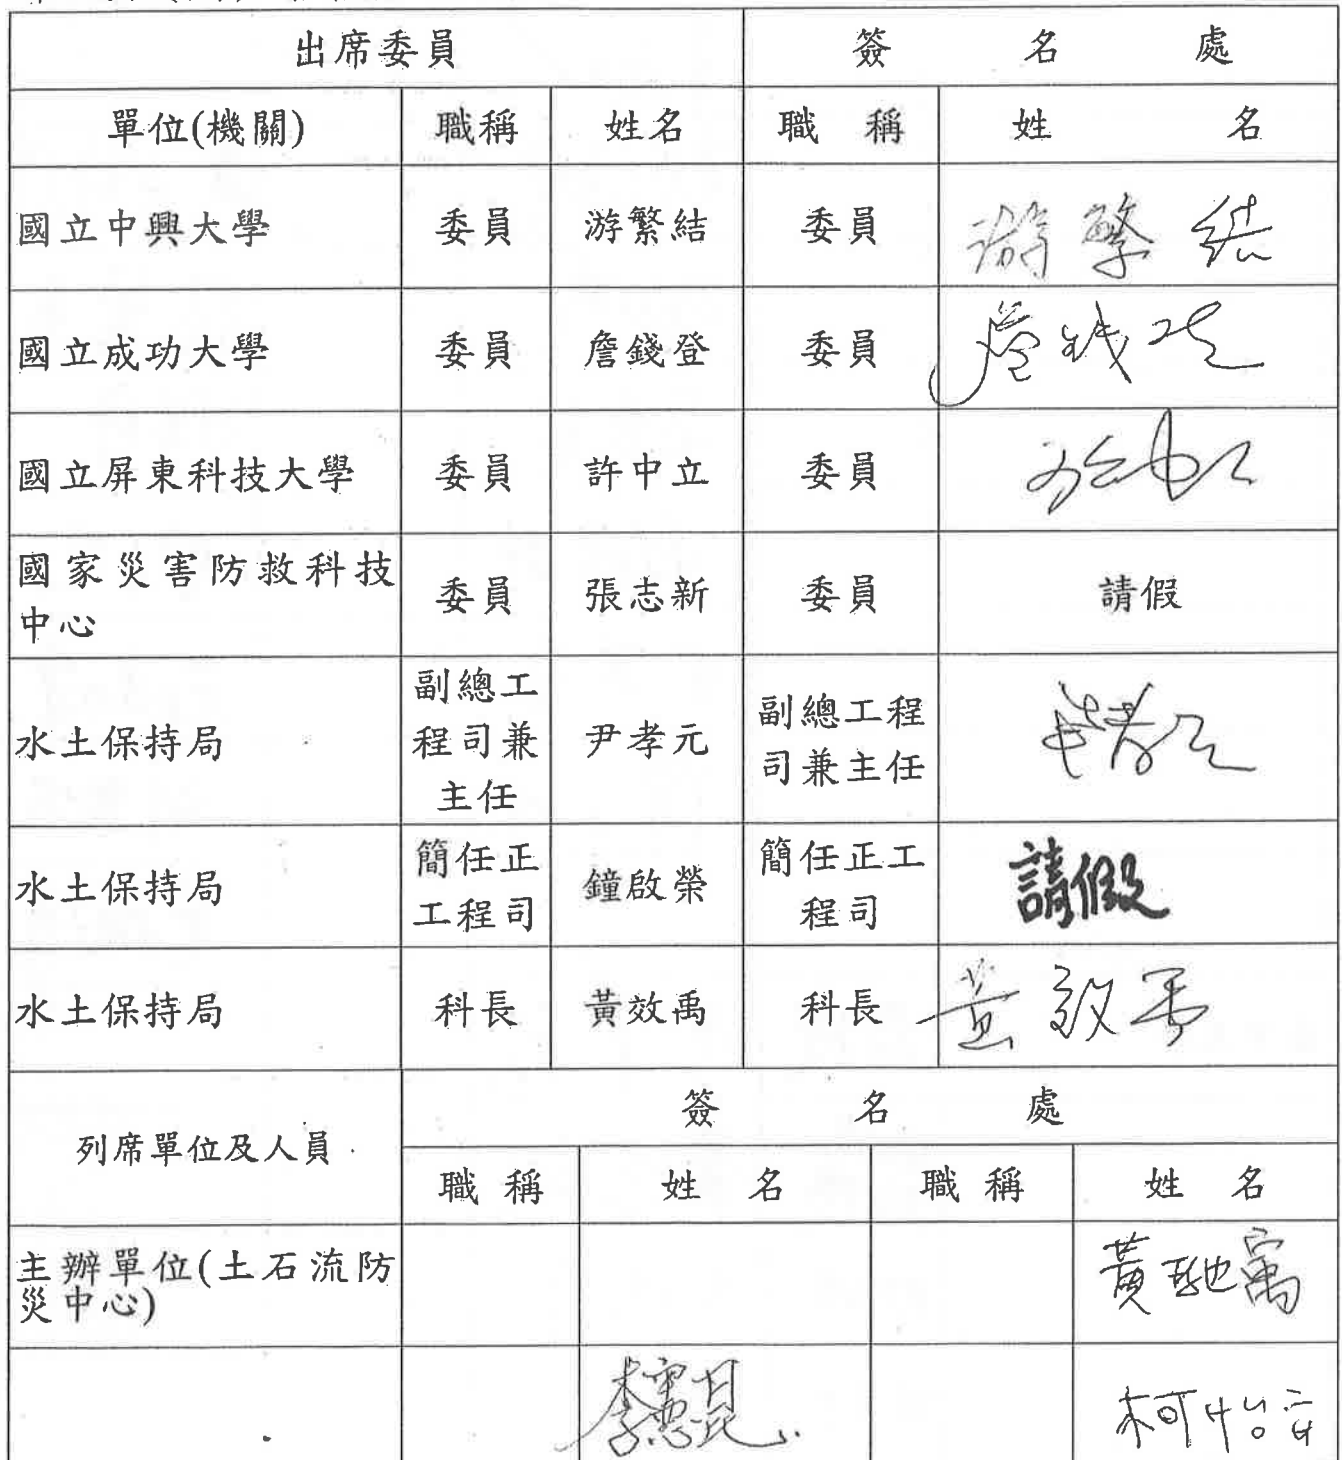 出席委員 簽名處
單位(機關) 職稱 姓名 職稱 姓名
國立中興大學 委員 游繁結 委員 游繁結
國立成功大學 委員 詹錢登 委員 詹錢登
國立屏東科技大學 委員 許中立 委員 許中立
國家災害防救科技
中心 委員 張志新 委員 請假
水土保持局 副總工
程司兼
主任 尹孝元 副總工程
司兼主任 尹孝元
水土保持局 簡任正
工程司 鐘啟榮 簡任正工
程司 請假
水土保持局 科長 黃效禹 科長 黃效禹
列席單位及人員 簽名處
職稱 姓名 職稱 姓名
主辦單位(土石流防
災中心)
黃馳寓
李憲昆
柯怡安